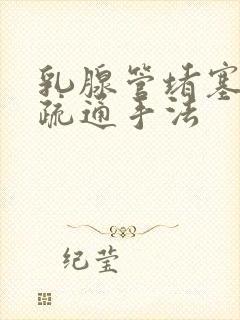 乳腺管堵塞
疏通手法
纪莹